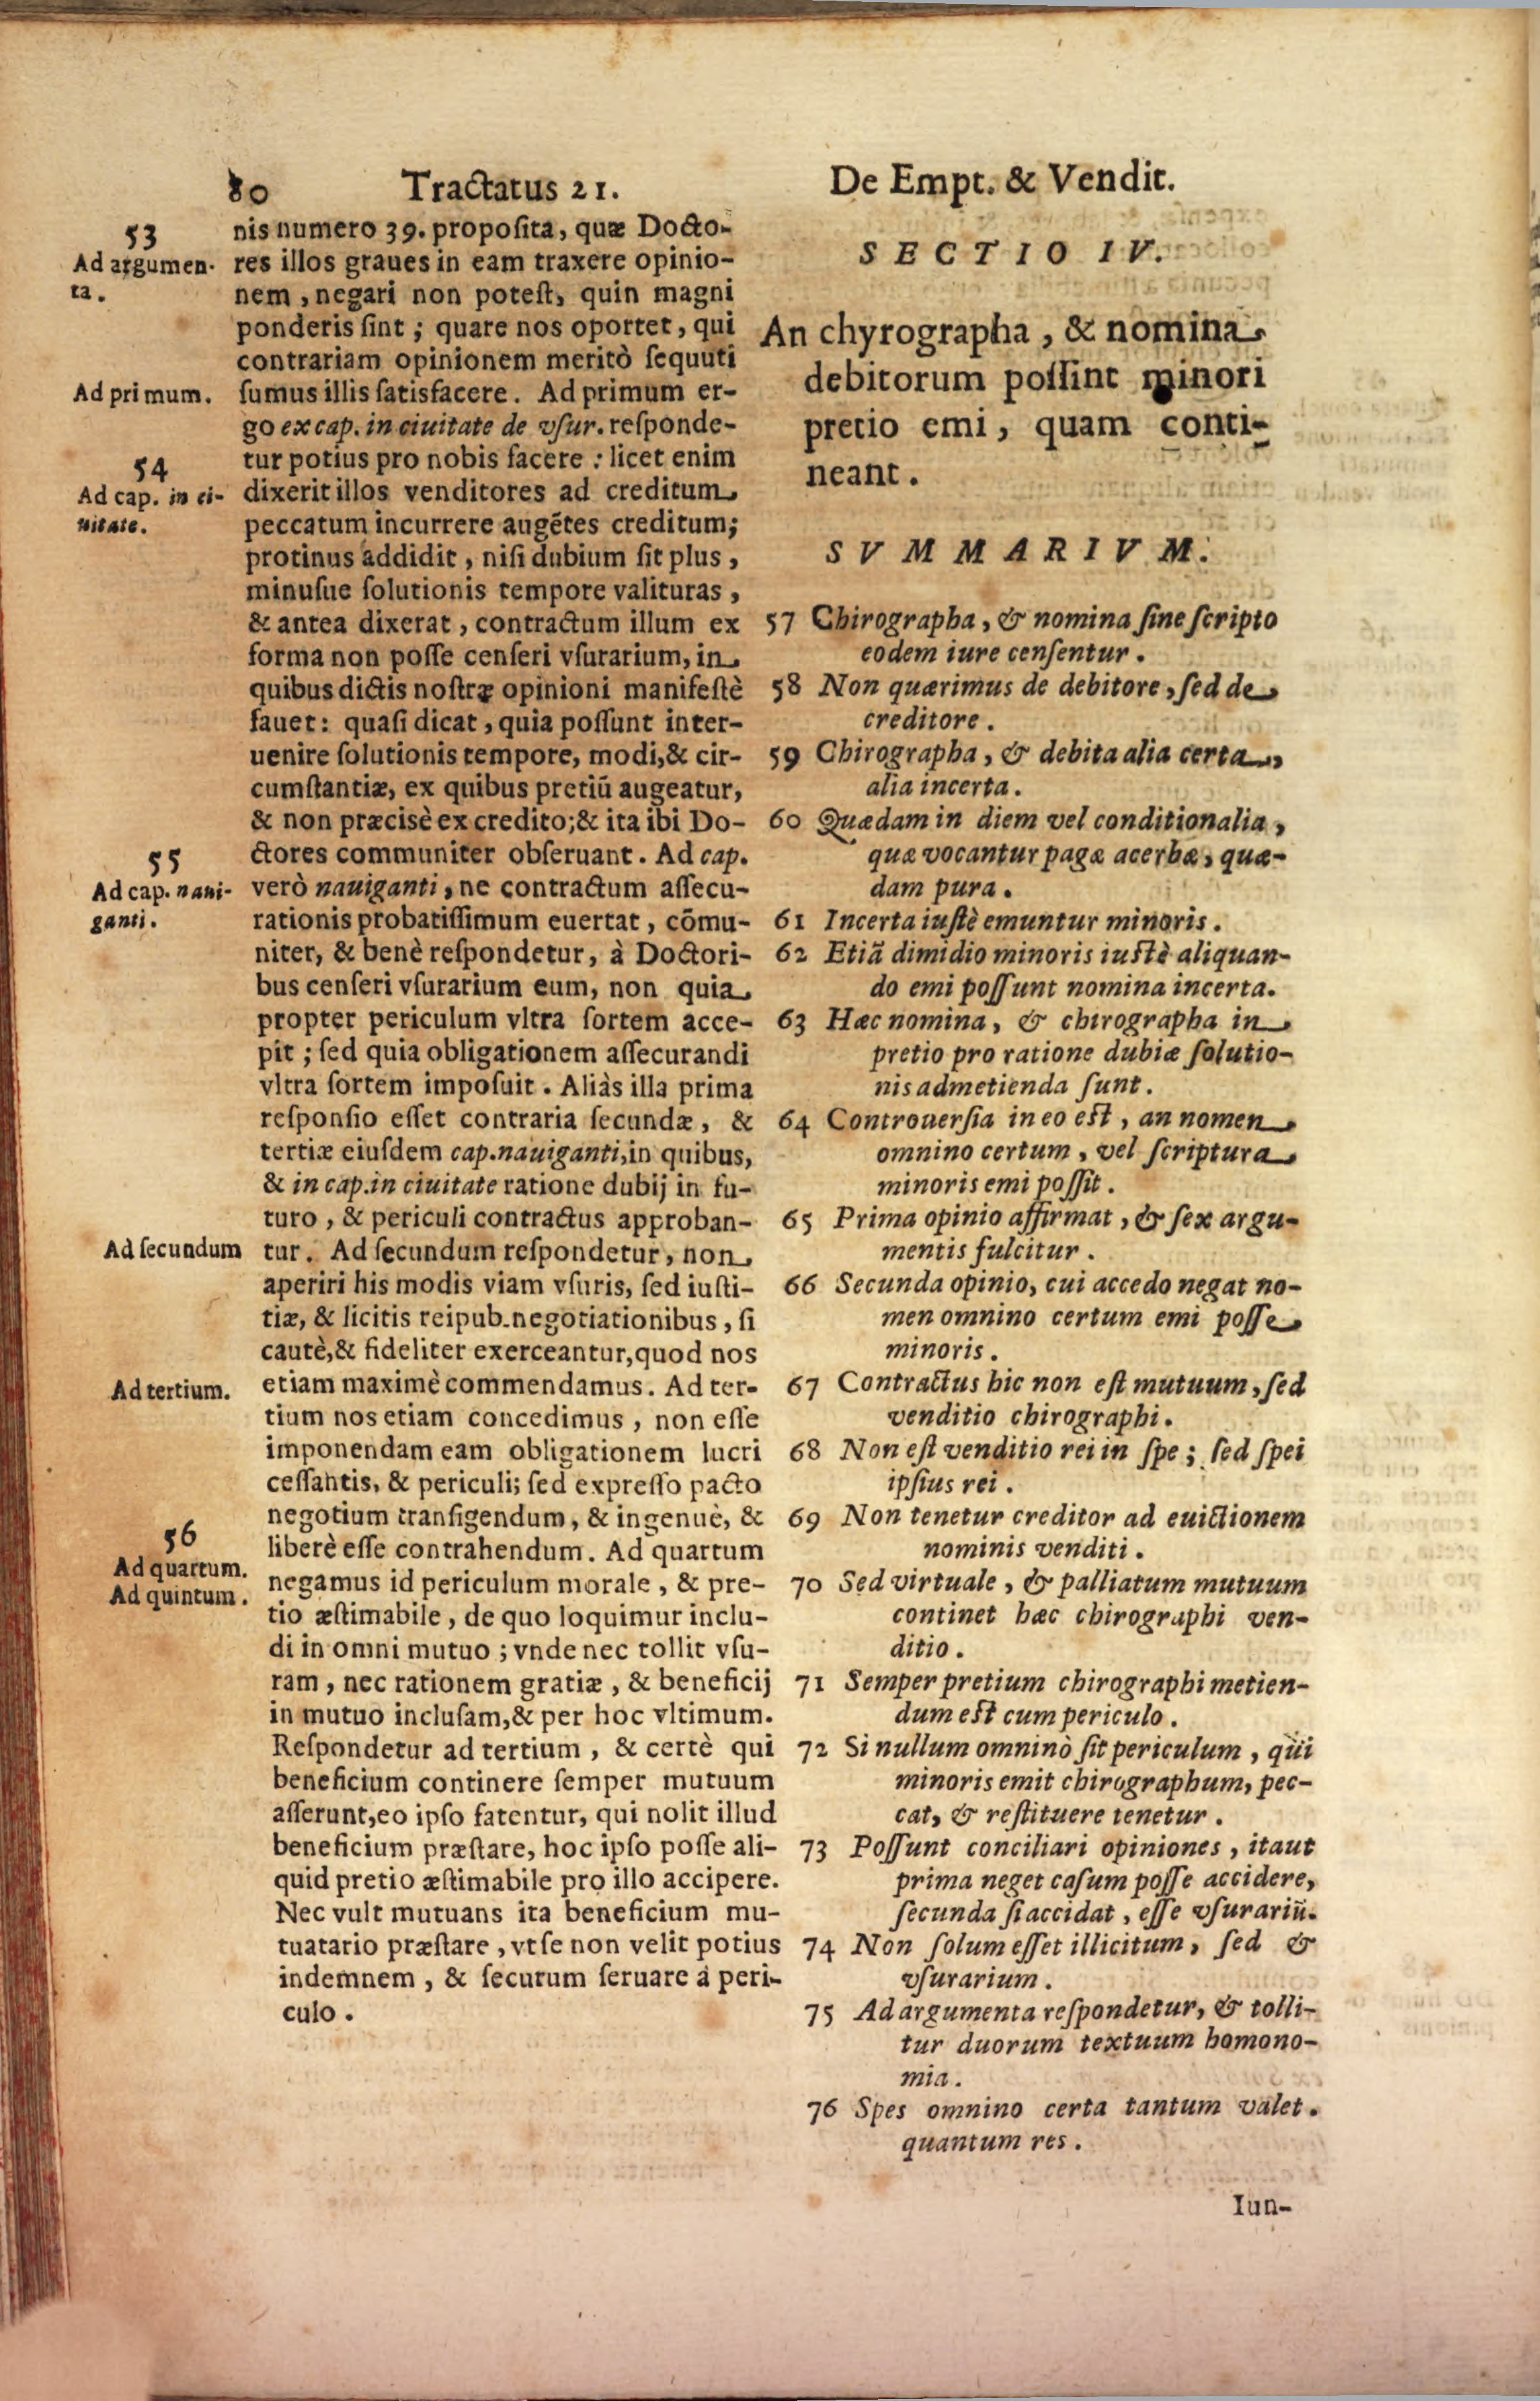 80 Tractatus 21.
De Empt. & Vendit.
53
Ad argumen-
ta.
Ad primum.
54
Ad cap. in ci-
uitate.
55
Ad cap. naui-
ganti.
Ad secundum
Ad tertium.
56
Ad quartum.
Ad quintum.
nis numero 39. proposita, quæ Docto-
res illos graues in eam traxere opinio-
nem, negari non potest, quin magni
ponderis sint; quare nos oportet, qui
contrariam opinionem meritò sequuti
sumus illis satisfacere. Ad primum er-
go ex cap. in ciuitate de vsur. responde-
tur potius pro nobis facere: licet enim
dixerit illos venditores ad creditum
peccatum incurrere augẽtes creditum;
protinus addidit, nisi dubium sit plus,
minusue solutionis tempore valituras,
& antea dixerat, contractum illum ex
forma non posse censeri vsurarium, in
quibus dictis nostræ opinioni manifestè
fauet: quasi dicat, quia possunt inter-
uenire solutionis tempore, modi,& cir-
cumstantiæ, ex quibus pretiũ augeatur,
& non præcisè ex credito;& ita ibi Do-
ctores communiter obseruant. Ad cap.
verò nauiganti, ne contractum assecu-
rationis probatissimum euertat, cõmu-
niter, & benè respondetur, à Doctori-
bus censeri vsurarium eum, non quia
propter periculum vltra sortem acce-
pit; sed quia obligationem assecurandi
vltra sortem imposuit. Aliàs illa prima
responsio esset contraria secundæ, &
tertiæ eiusdem cap.nauiganti,in quibus,
& in cap.in ciuitate ratione dubij in fu-
turo, & periculi contractus approban-
tur. Ad secundum respondetur, non
aperiri his modis viam vsuris, sed iusti-
tiæ, & licitis reipub.negotiationibus, si
cautè,& fideliter exerceantur,quod nos
etiam maximè commendamus. Ad ter-
tium nos etiam concedimus, non esse
imponendam eam obligationem lucri
cessantis, & periculi; sed expresso pacto
negotium transigendum, & ingenuè, &
liberè esse contrahendum. Ad quartum
negamus id periculum morale, & pre-
tio æstimabile, de quo loquimur inclu-
di in omni mutuo; vnde nec tollit vsu-
ram, nec rationem gratiæ, & beneficij
in mutuo inclusam,& per hoc vltimum.
Respondetur ad tertium, & certè qui
beneficium continere semper mutuum
asserunt,eo ipso fatentur, qui nolit illud
beneficium præstare, hoc ipso posse ali-
quid pretio æstimabile pro illo accipere.
Nec vult mutuans ita beneficium mu-
tuatario præstare, vt se non velit potius
indemnem, & securum seruare à peri-
culo.
SECTIO IV.
An chyrographa, & nomina
debitorum possint minori
pretio emi, quam conti-
neant.
SVMMARIVM.
57 Chirographa, & nomina sine scripto
eodem iure censentur.
58 Non quærimus de debitore, sed de
creditore.
59 Chirographa, & debita alia certa,
alia incerta.
60 Quædam in diem vel conditionalia,
quæ vocantur pagæ acerbæ, quæ-
dam pura.
61 Incerta iustè emuntur minoris.
62 Etiã dimidio minoris iustè aliquan-
do emi possunt nomina incerta.
63 Hæc nomina, & chirographa in
pretio pro ratione dubiæ solutio-
nis admetienda sunt.
64 Controuersia in eo est, an nomen
omnino certum, vel scriptura
minoris emi possit.
65 Prima opinio affirmat, & sex argu-
mentis fulcitur.
66 Secunda opinio, cui accedo negat no-
men omnino certum emi posse
minoris.
67 Contractus hic non est mutuum, sed
venditio chirographi.
68 Non est venditio rei in spe; sed spei
ipsius rei.
69 Non tenetur creditor ad euictionem
nominis venditi.
70 Sed virtuale, & palliatum mutuum
continet hæc chirographi ven-
ditio.
71 Semper pretium chirographi metien-
dum est cum periculo.
72 Si nullum omninò sit periculum, qui
minoris emit chirographum, pec-
cat, & restituere tenetur.
73 Possunt conciliari opiniones, itaut
prima neget casum posse accidere,
secunda si accidat, esse vsurariũ.
74 Non solum esset illicitum, sed &
vsurarium.
75 Ad argumenta respondetur, & tolli-
tur duorum textuum homono-
mia.
76 Spes omnino certa tantum valet.
quantum res.
Iun-